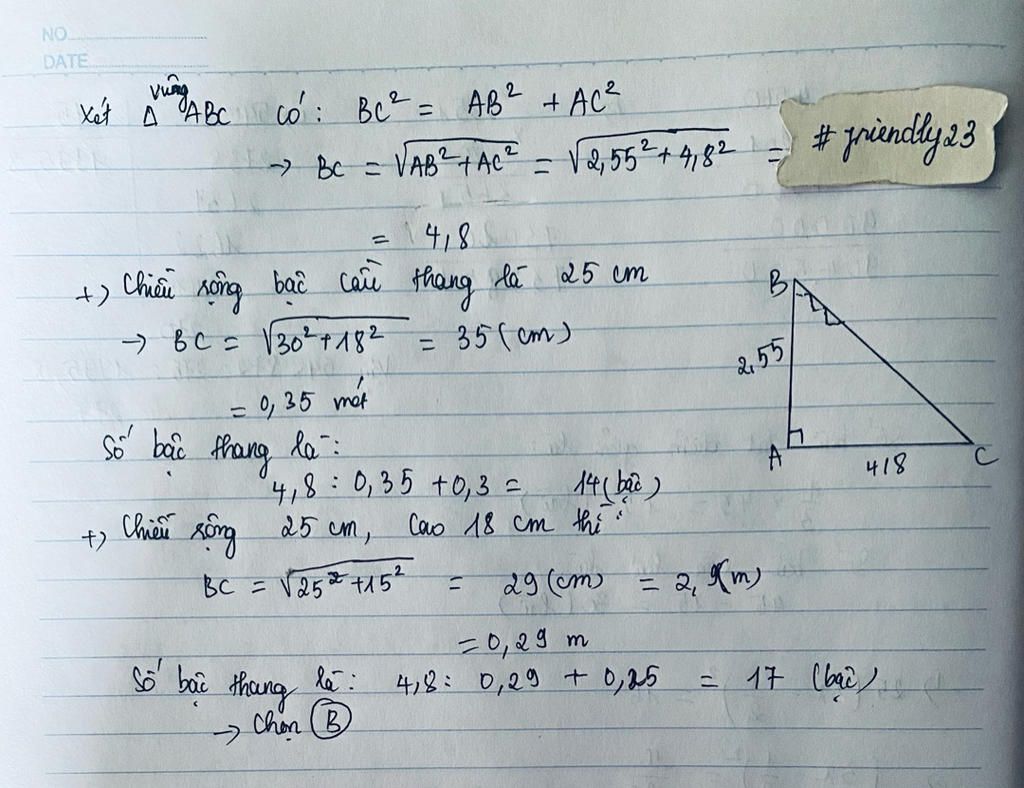 NO
DATE
Xét Δ vuông ABC có: BC² = AB² + AC²
→ BC = √AB²+AC² = √2,55²+4,8² =
# friendly23
= 4,8
+) Chiều rộng bậc cầu thang là 25 cm
→ BC = √30²+18² = 35 (cm)
= 0,35 mét
Số bậc thang là:
4,8 : 0,35 + 0,3 = 14 (bậc)
+) Chiều rộng 25 cm, cao 18 cm thì:
BC = √25²+15² = 29 (cm) = 2,9 (m)
= 0,29 m
Số bậc thang là: 4,8 : 0,29 + 0,25 = 17 (bậc)
→ Chọn B
B
2,55
A
4,8
C